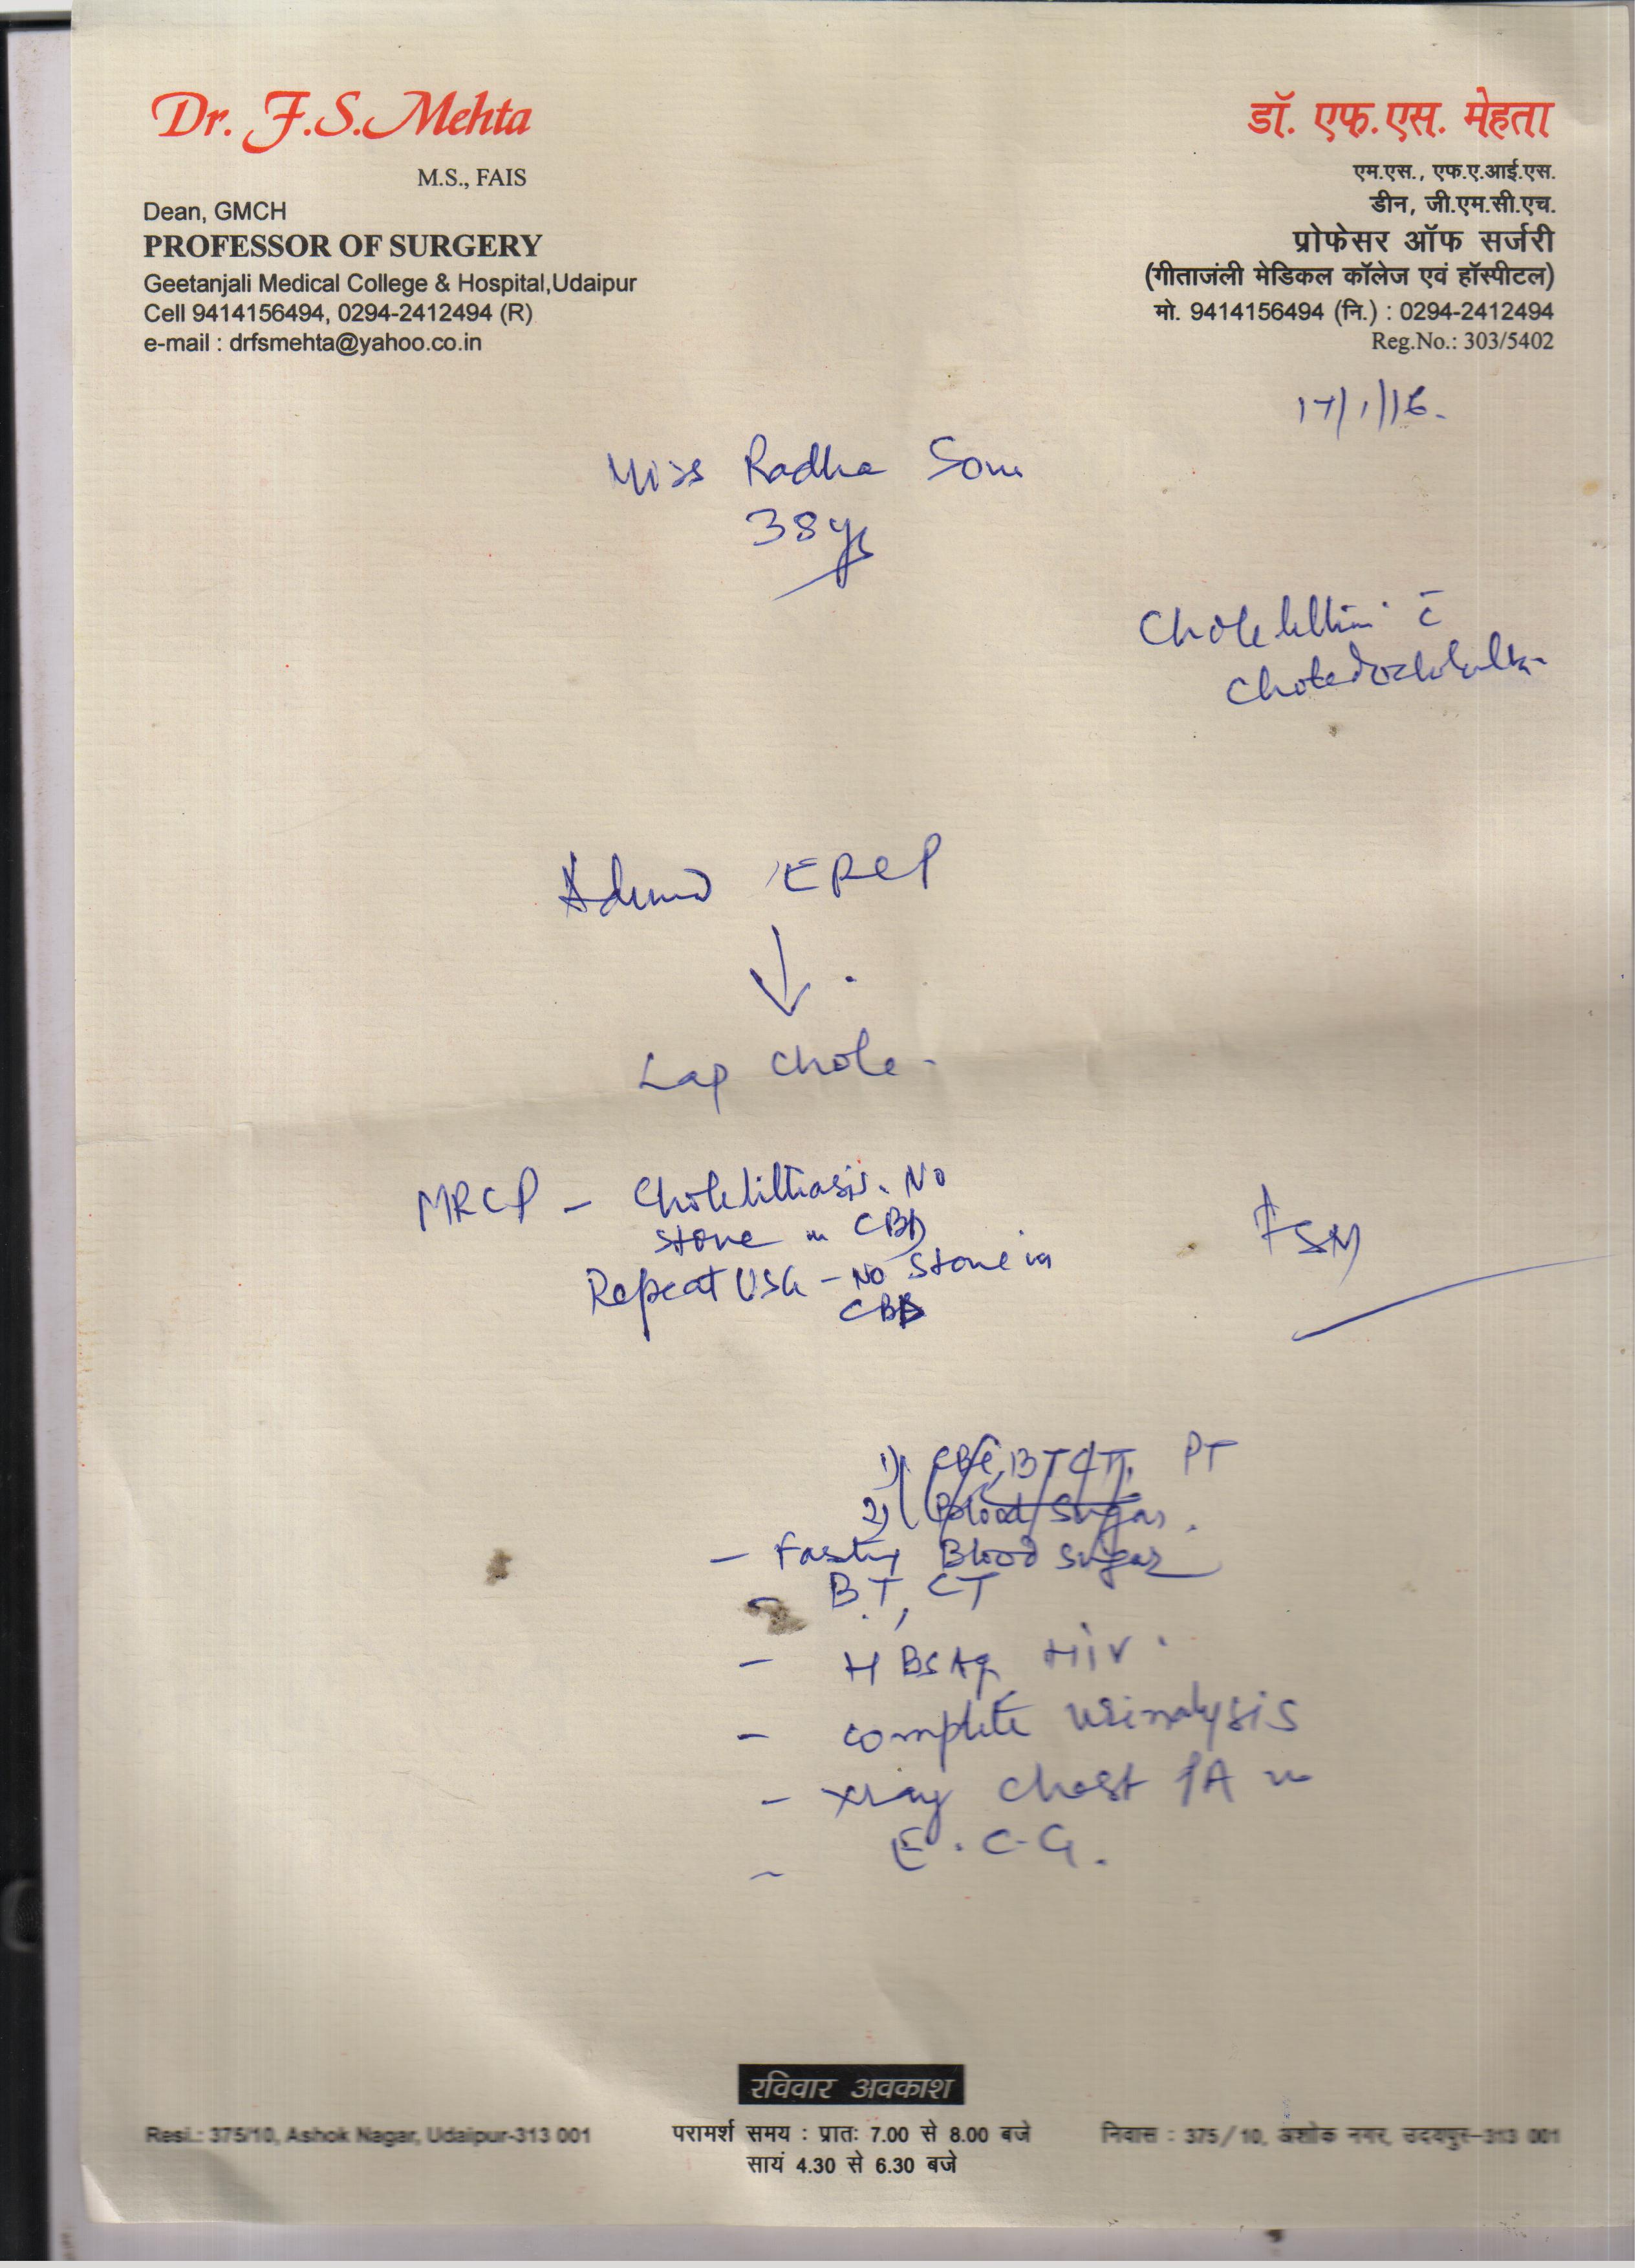 Dr. F.S. Mehta
M.S., FAIS
Dean, GMCH
PROFESSOR OF SURGERY
Geetanjali Medical College & Hospital,Udaipur
Cell 9414156494, 0294-2412494 (R)
e-mail : drfsmehta@yahoo.co.in
डॉ. एफ.एस. मेहता
एम.एस., एफ.ए.आई.एस.
डीन, जी.एम.सी.एच.
प्रोफेसर ऑफ सर्जरी
(गीताजंली मेडिकल कॉलेज एवं हॉस्पीटल)
मो. 9414156494 (नि.) : 0294-2412494
Reg.No.: 303/5402
17/1/16.
Miss Radha Soni
38 yrs
c̄
ERCP
↓
Lap chole -
MRCP - Cholelithiasis. No
stone in CBD
Repeat USG - No stone in
CBD
FSM
1) CBC, BT CT, PT
2) Blood Sugar.
- Fasting Blood sugar
- B.T, CT
- HBSAg HIV.
- complete urinalysis
- xray chest PA
- E.C.G.
रविवार अवकाश
Resi.: 375/10, Ashok Nagar, Udaipur-313 001
परामर्श समय : प्रातः 7.00 से 8.00 बजे
सायं 4.30 से 6.30 बजे
निवास : 375/10, अशोक नगर, उदयपुर-313 001